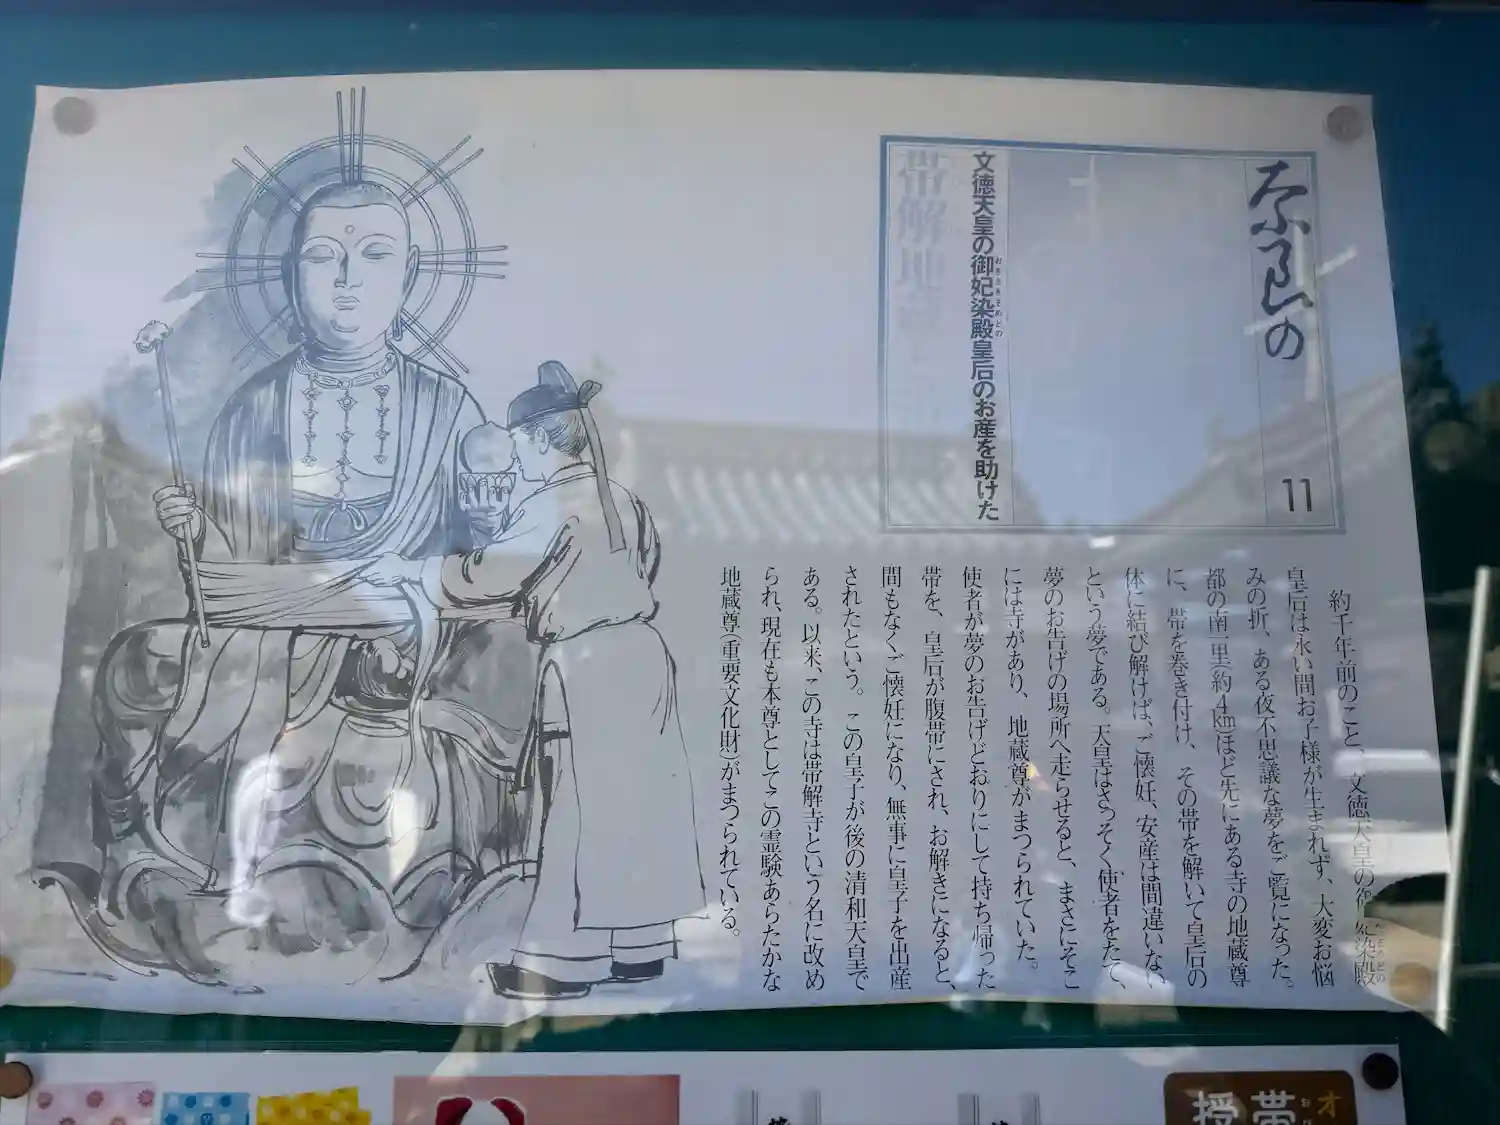 奈良の
11
おきさきそめどの
文徳天皇の御妃染殿皇后のお産を助けた
帯解地蔵
約千年前のこと、文徳天皇の御妃染殿
皇后は永い間お子様が生まれず、大変お悩
みの折、ある夜不思議な夢をご覧になった。
都の南一里(約4㎞)ほど先にある寺の地蔵尊
に、帯を巻き付け、その帯を解いて皇后の
体に結び解けば、ご懐妊、安産は間違いない
という夢である。天皇はさっそく使者をたて、
夢のお告げの場所へ走らせると、まさにそこ
には寺があり、地蔵尊がまつられていた。
使者が夢のお告げどおりにして持ち帰った
帯を、皇后が腹帯にされ、お解きになると、
間もなくご懐妊になり、無事に皇子を出産
されたという。この皇子が後の清和天皇で
ある。以来、この寺は帯解寺という名に改め
られ、現在も本尊としてこの霊験あらたかな
地蔵尊(重要文化財)がまつられている。
オ
帯
授